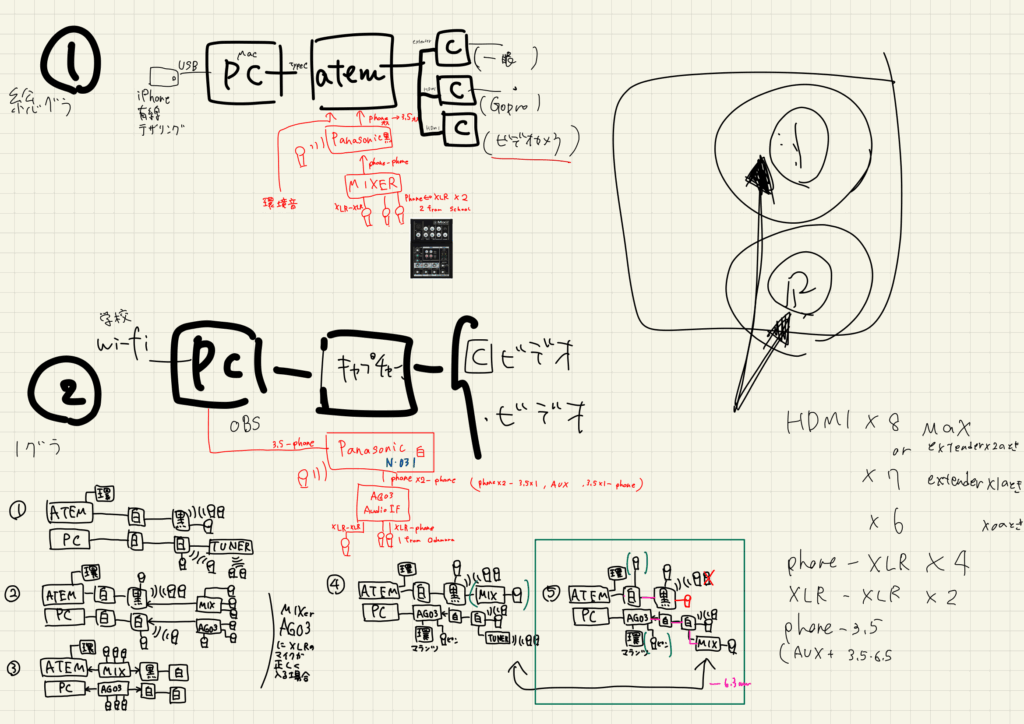 ①
総グラ
USB
iPhone
有線
テザリング
Mac
PC
TypeC
atem
HDMI
C
(一眼)
HDMI
C
(Gopro)
HDMI
C
(ビデオカメラ)
phone → 3.5
Panasonic 黒
phone-phone
MIXER
環境音
XLR-XLR
Phone XLR × 2
2 from School
②
1グラ
学校
wi-fi
PC
OBS
キャプチャー
C ビデオ
・ビデオ
3.5-phone
Panasonic 白
N-031
phone×2-phone
(phone×2-3.5×1, AUX, 3.5×1-phone)
AG03
Audio IF
XLR-XLR
XLR-phone
1 from Odamura
HDMI × 8 MAX
or extender×2あとき
× 7 extender×1あとき
× 6 ×0あとき
phone - XLR × 4
XLR - XLR × 2
phone - 3.5
(AUX + 3.5-6.5
①
環
ATEM 白 黒
PC 白 白 TUNER
②
環
ATEM 白 黒 MIX
PC 白 白 AG03
③
環
ATEM MIX 黒 白
PC AG03 白 白
MIXer
AG03
にXLRの
マイクが
正しく
入る場合
④
環
ATEM 白 黒 (MIX )
PC AG03 白 白
環 ピン TUNER
マランツ
⑤
環 ( )
ATEM 白 黒
PC AG03 白 白
環 ( ピン ) MIX
マランツ
- 6.3m